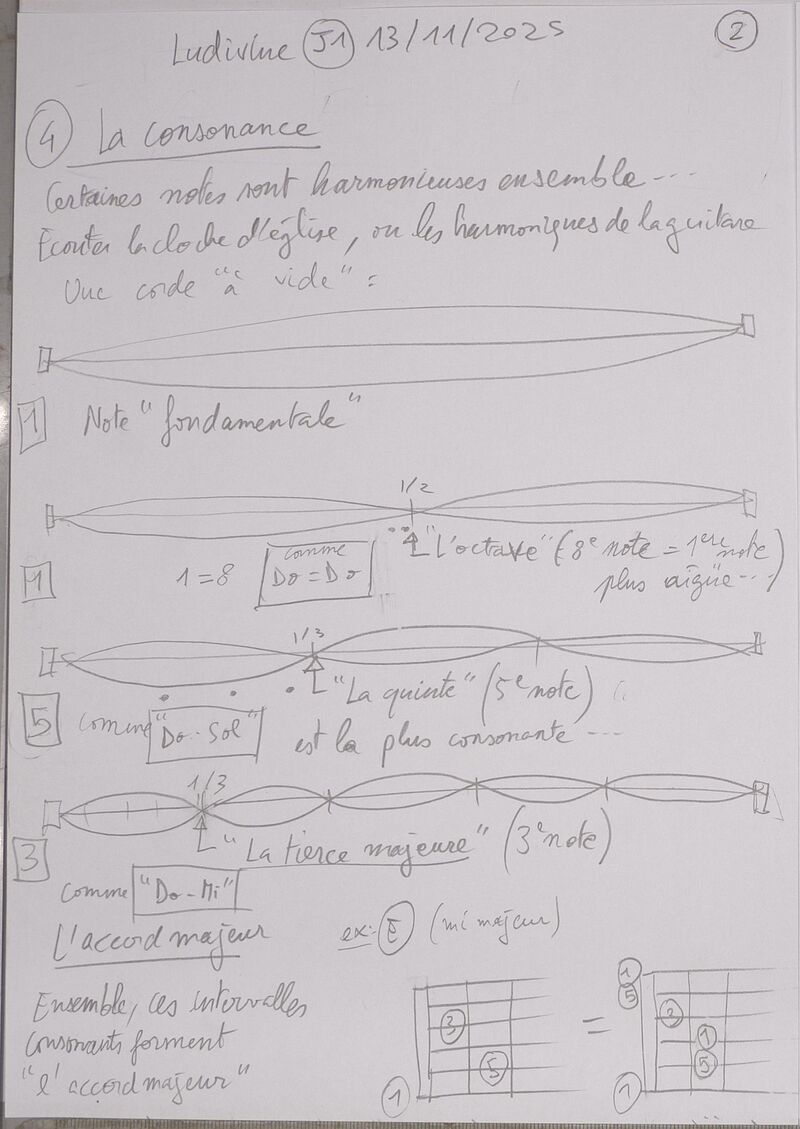 Ludivine J1 13/11/2025
2
4 La consonance
Certaines notes sont harmonieuses ensemble ...
Ecouter la cloche d'église, ou les harmoniques de la guitare
Une corde "à vide" =
1 Note "fondamentale"
1/2
"L'octave" (8e note = 1ere note
plus aigüe...)
1 1=8 comme
Do = Do
1/3
"La quinte" (5e note)
5 comme "Do-Sol" est la plus consonante ...
1/3
"La tierce majeure" (3e note)
3
comme "Do-Mi"
L'accord majeur ex: E (mi majeur)
Ensemble, ces intervalles
consonants forment
"l'accord majeur"
3
5
1
=
1
5
1
5
1